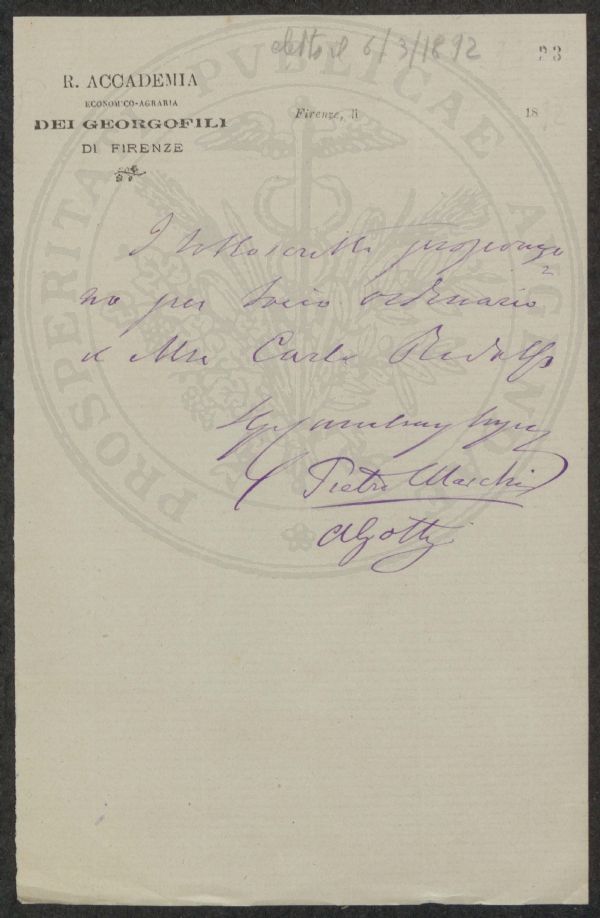 eletto il 6/3/1892
23
R. ACCADEMIA
ECONOMICO-AGRARIA
DEI GEORGOFILI
DI FIRENZE
Firenze, li 18
PROSPERITATI PUBLICAE AUGENDAE
I sottoscritti propongo
no per socio ordinario
il Mse Carlo Ridolfi
Pietro Marchi